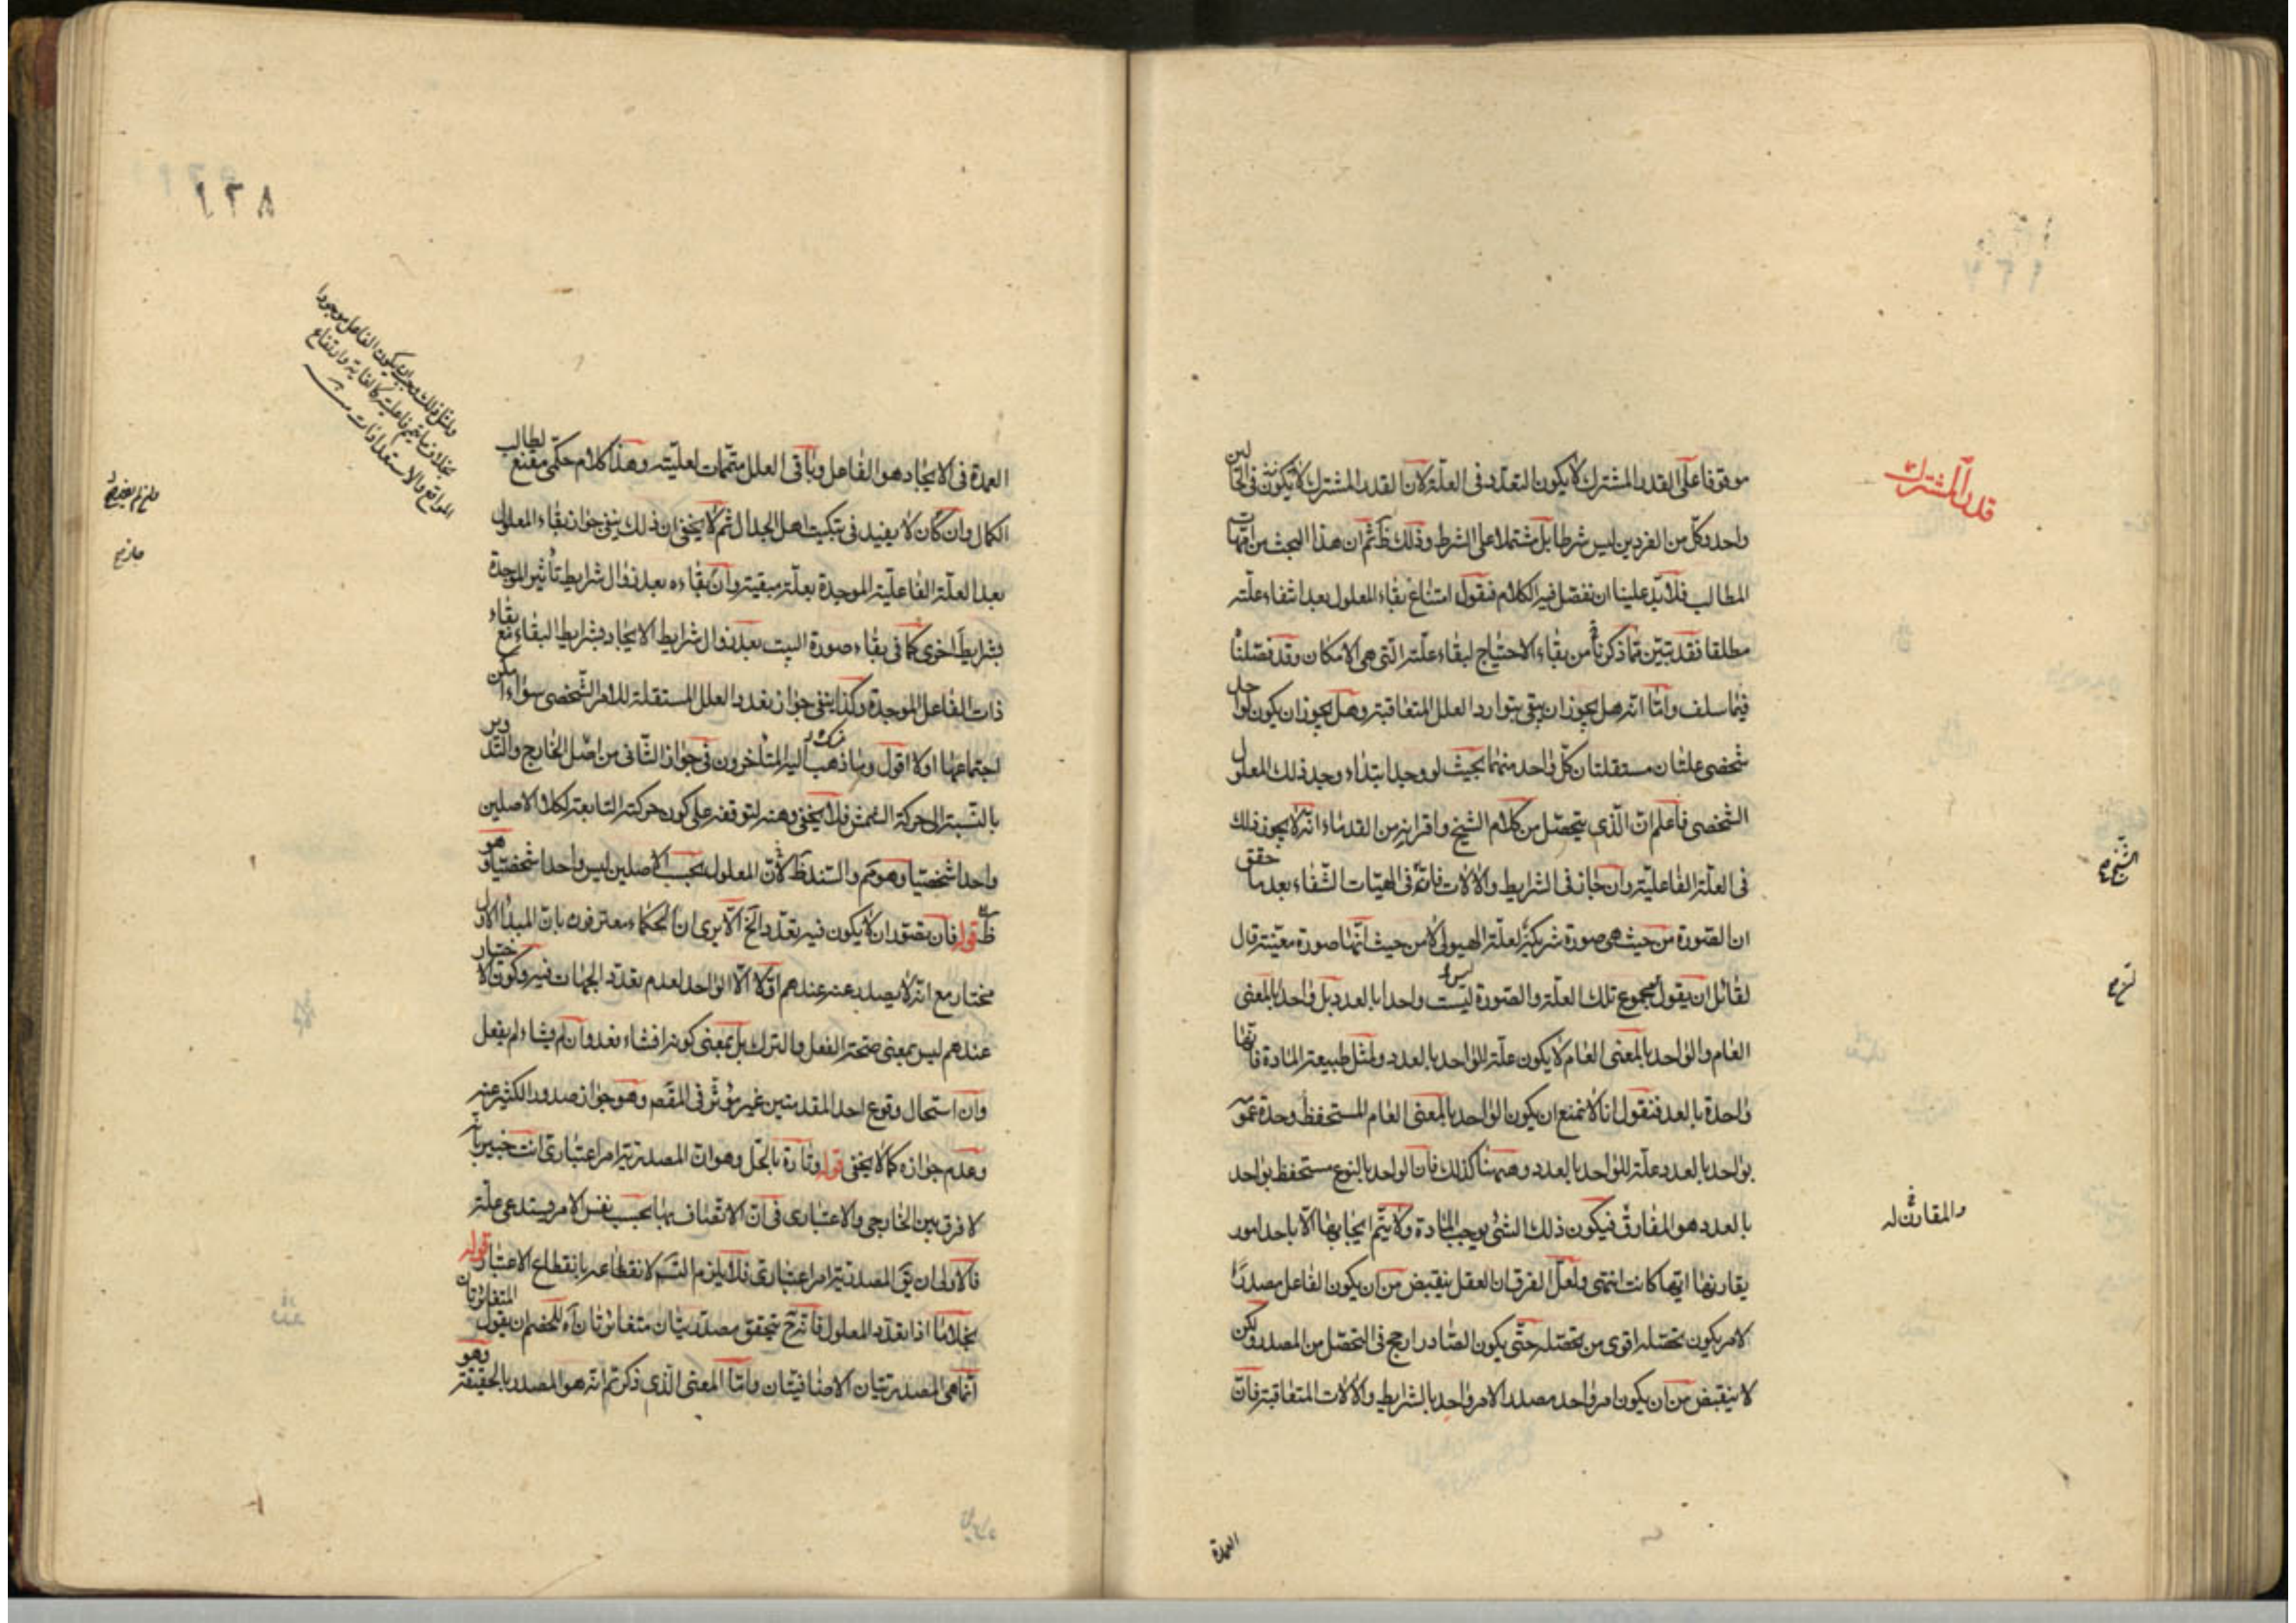 موقوفا على القدر المشترك لا يكون لتعدد فى العلة لان القدر المشترك لا يكون فى الحالين
واحد وكل من الفردين ليس شرطا بل مشتملا على الشرط وذلك ظ ثم ان هذا البحث من امهات
المطالب فلا بد علينا ان نفصل فيه الكلام فنقول امتناع بقاء المعلول بعد انتفاء علته
مطلقا فقد تبين مما ذكرنا من بقاء الاحتياج لبقاء علته التى هى الامكان وقد فصلنا
فيما سلف واما انه هل يجوز ان يبقى بتوارد العلل المتعاقبة وهل يجوز ان يكون لواحد
شخصى علتان مستقلتان كل واحد منهما بحيث لو وجد ابتداء وجد ذلك المعلول
الشخصى فاعلم ان الذى يتحصل من كلام الشيخ واقرانه من القدماء انه لا يجوز ذلك
فى العلة الفاعلية وان جاز فى الشرايط والالات فانه فى الهيات الشفاء بعد ما حقق
ان الصورة من حيث هى صورة شريكة لعلة الهيولى لا من حيث انها صورة معينة قال
لقائل ان يقول مجموع تلك العلة والصورة ليست واحدا بالعدد بل واحد بالمعنى
العام والواحد بالمعنى العام لا يكون علة للواحد بالعدد ولمثل طبيعة المادة فانها
واحدة بالعدد فنقول انا لا نمنع ان يكون الواحد بالمعنى العام المستحفظ وحدة عمومه
بواحد بالعدد علة للواحد بالعدد وههنا كذلك فان الواحد بالنوع مستحفظ بواحد
بالعدد هو المفارق فيكون ذلك الشئ يوجب المادة ولا يتم ايجابها الا باحد امور
يقارنها ايتها كانت انتهى ولعل الفرق ان العقل ينقبض من ان يكون الفاعل مصدرا
لامر يكون تحصله اقوى من تحصله حتى يكون الصادر ارجح فى التحصل من المصدر ولكن
لا ينقبض من ان يكون امر واحد مصدرا لامر واحد بالشرايط والالات المتعاقبة فان
العمدة
قدر المشترك
والمقارن له
١٢٨
العمدة فى الايجاد هو الفاعل وباقى العلل متممات لعليته وهذا كلام حكمى مقنع لطالب
الكمال وان كان لا يفيد فى تبكيت اهل الجدال ثم لا يخفى ان ذلك ينفى جواز بقاء المعلول
بعد العلة الفاعلية الموجدة بعلة مبقية وان بقاءه بعد زوال شرايط تأثير الموجدة
بشرايط اخرى كما فى بقاء صورة البيت بعد زوال شرايط الايجاد بشرايط البقاء مع بقاء
ذات الفاعل الموجدة وكذا ينفى جواز تعدد العلل المستقلة للامر الشخصى سواء امكن
اجتماعها اولا اقول وما ذهب اليه المتأخرون فى جواز الثانى من اصل الخارج والتدوير
بالنسبة الى حركة الشمس فلا يخفى وهنه لتوقفه على كون حركته التابعة لكلا الاصلين
واحدا شخصيا وهو مم والسند ظ لان المعلول بحسب الاصلين ليس واحدا شخصيا وهو
ظ قوله فان تصور ان لا يكون فيه تعدد الخ الا يرى ان الحكماء معترفون بان المبدأ الاول
مختار مع انه لا يصدر عنه عندهم اولا الا الواحد لعدم تعدد الجهات فيه وكون الاختيار
عندهم ليس بمعنى صحة الفعل والترك بل بمعنى كونه ان شاء فعل وان لم يشاء لم يفعل
وان استحال وقوع احد المقدمتين غير مؤثر فى المقصم وهو جواز صدور الكثير عنه
وعدم جوازه كما لا يخفى قوله وتارة بالحل وهو ان المصدرية امر اعتبارى انت خبير بانه
لا فرق بين الخارجى والاعتبارى فى ان الاتصاف بها بحسب نفس الامر يستدعى علة
فالاولى ان يق المصدرية امر اعتبارى فلا يلزم التسم لانقطاعه بانقطاع الاعتبار قوله
بخلاف ما اذا تعدد المعلول فانه ح يتحقق مصدريتان متغايرتان اه للخصم ان يقول المتغايرتان
انما هى المصدريتان الاضافيتان واما المعنى الذى ذكرتم انه هو المصدر بالحقيقة وهو
ولمثل ذلك وجب ان يكون الفاعل موجودا
بخلاف ما يتم فاعليته كالغاية وارتفاع
الموانع والاستعدادات منه